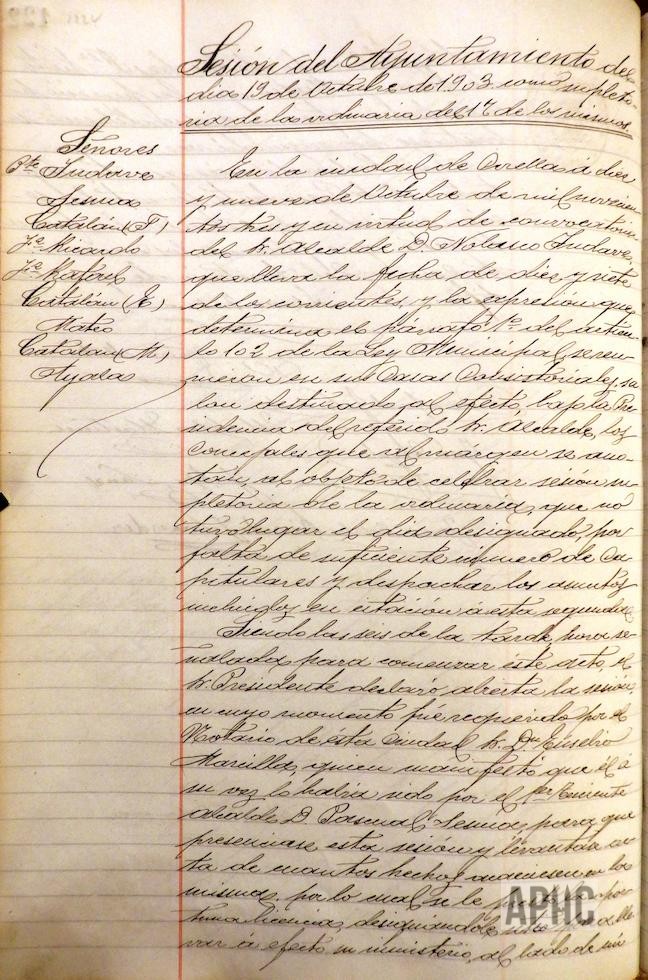 Sesión del Ayuntamiento del
día 19 de Octubre de 1903 como supleto-
ria de la ordinaria del 17 de los mismos.
Señores
Pte Sudave
Jesusa
Catalán (F)
Jz Ricardo
Jz Rafael
Catalán (E)
Mateo
Catalan (M)
Ayala
En la ciudad de Corella á diez
y nueve de Octubre de mil novecien-
tos tres y en virtud de convocatoria
del Sr. Alcalde D.
que lleva la fecha de diez y siete
de los corrientes, y la expresión que
determina el párrafo 1º del artícu-
lo 102 de la Ley Municipal, se reu-
nieron en sus Casas Consistoriales, sa-
lon destinado al efecto, bajo la Pre-
sidencia del referido Sr. Alcalde, los
Concejales que al margen se ano-
tan, al objeto de celebrar sesión su-
pletoria de la ordinaria, que no
tuvo lugar el dia designado, por
falta de suficiente número de Ca-
pitulares y despachar los asuntos
incluidos en citación á esta segunda.
Siendo las seis de la tarde, hora se-
ñalada para comenzar éste acto, el
Sr. Presidente declaró abierta la sesión,
en cuyo momento fué requerido por el
Notario de ésta Ciudad Sr. Dn Eusebio
Marcilla, quien manifestó que él á
su vez lo habia sido por el 1er Teniente
alcalde D. Pascual para que
presenciase esta sesión y levantara ac-
ta de cuantos hechos acaeciesen en la
misma, por lo cual se le
tuna licencia, designándole para lle-
var á efecto su ministerio, al lado de mi
APHC